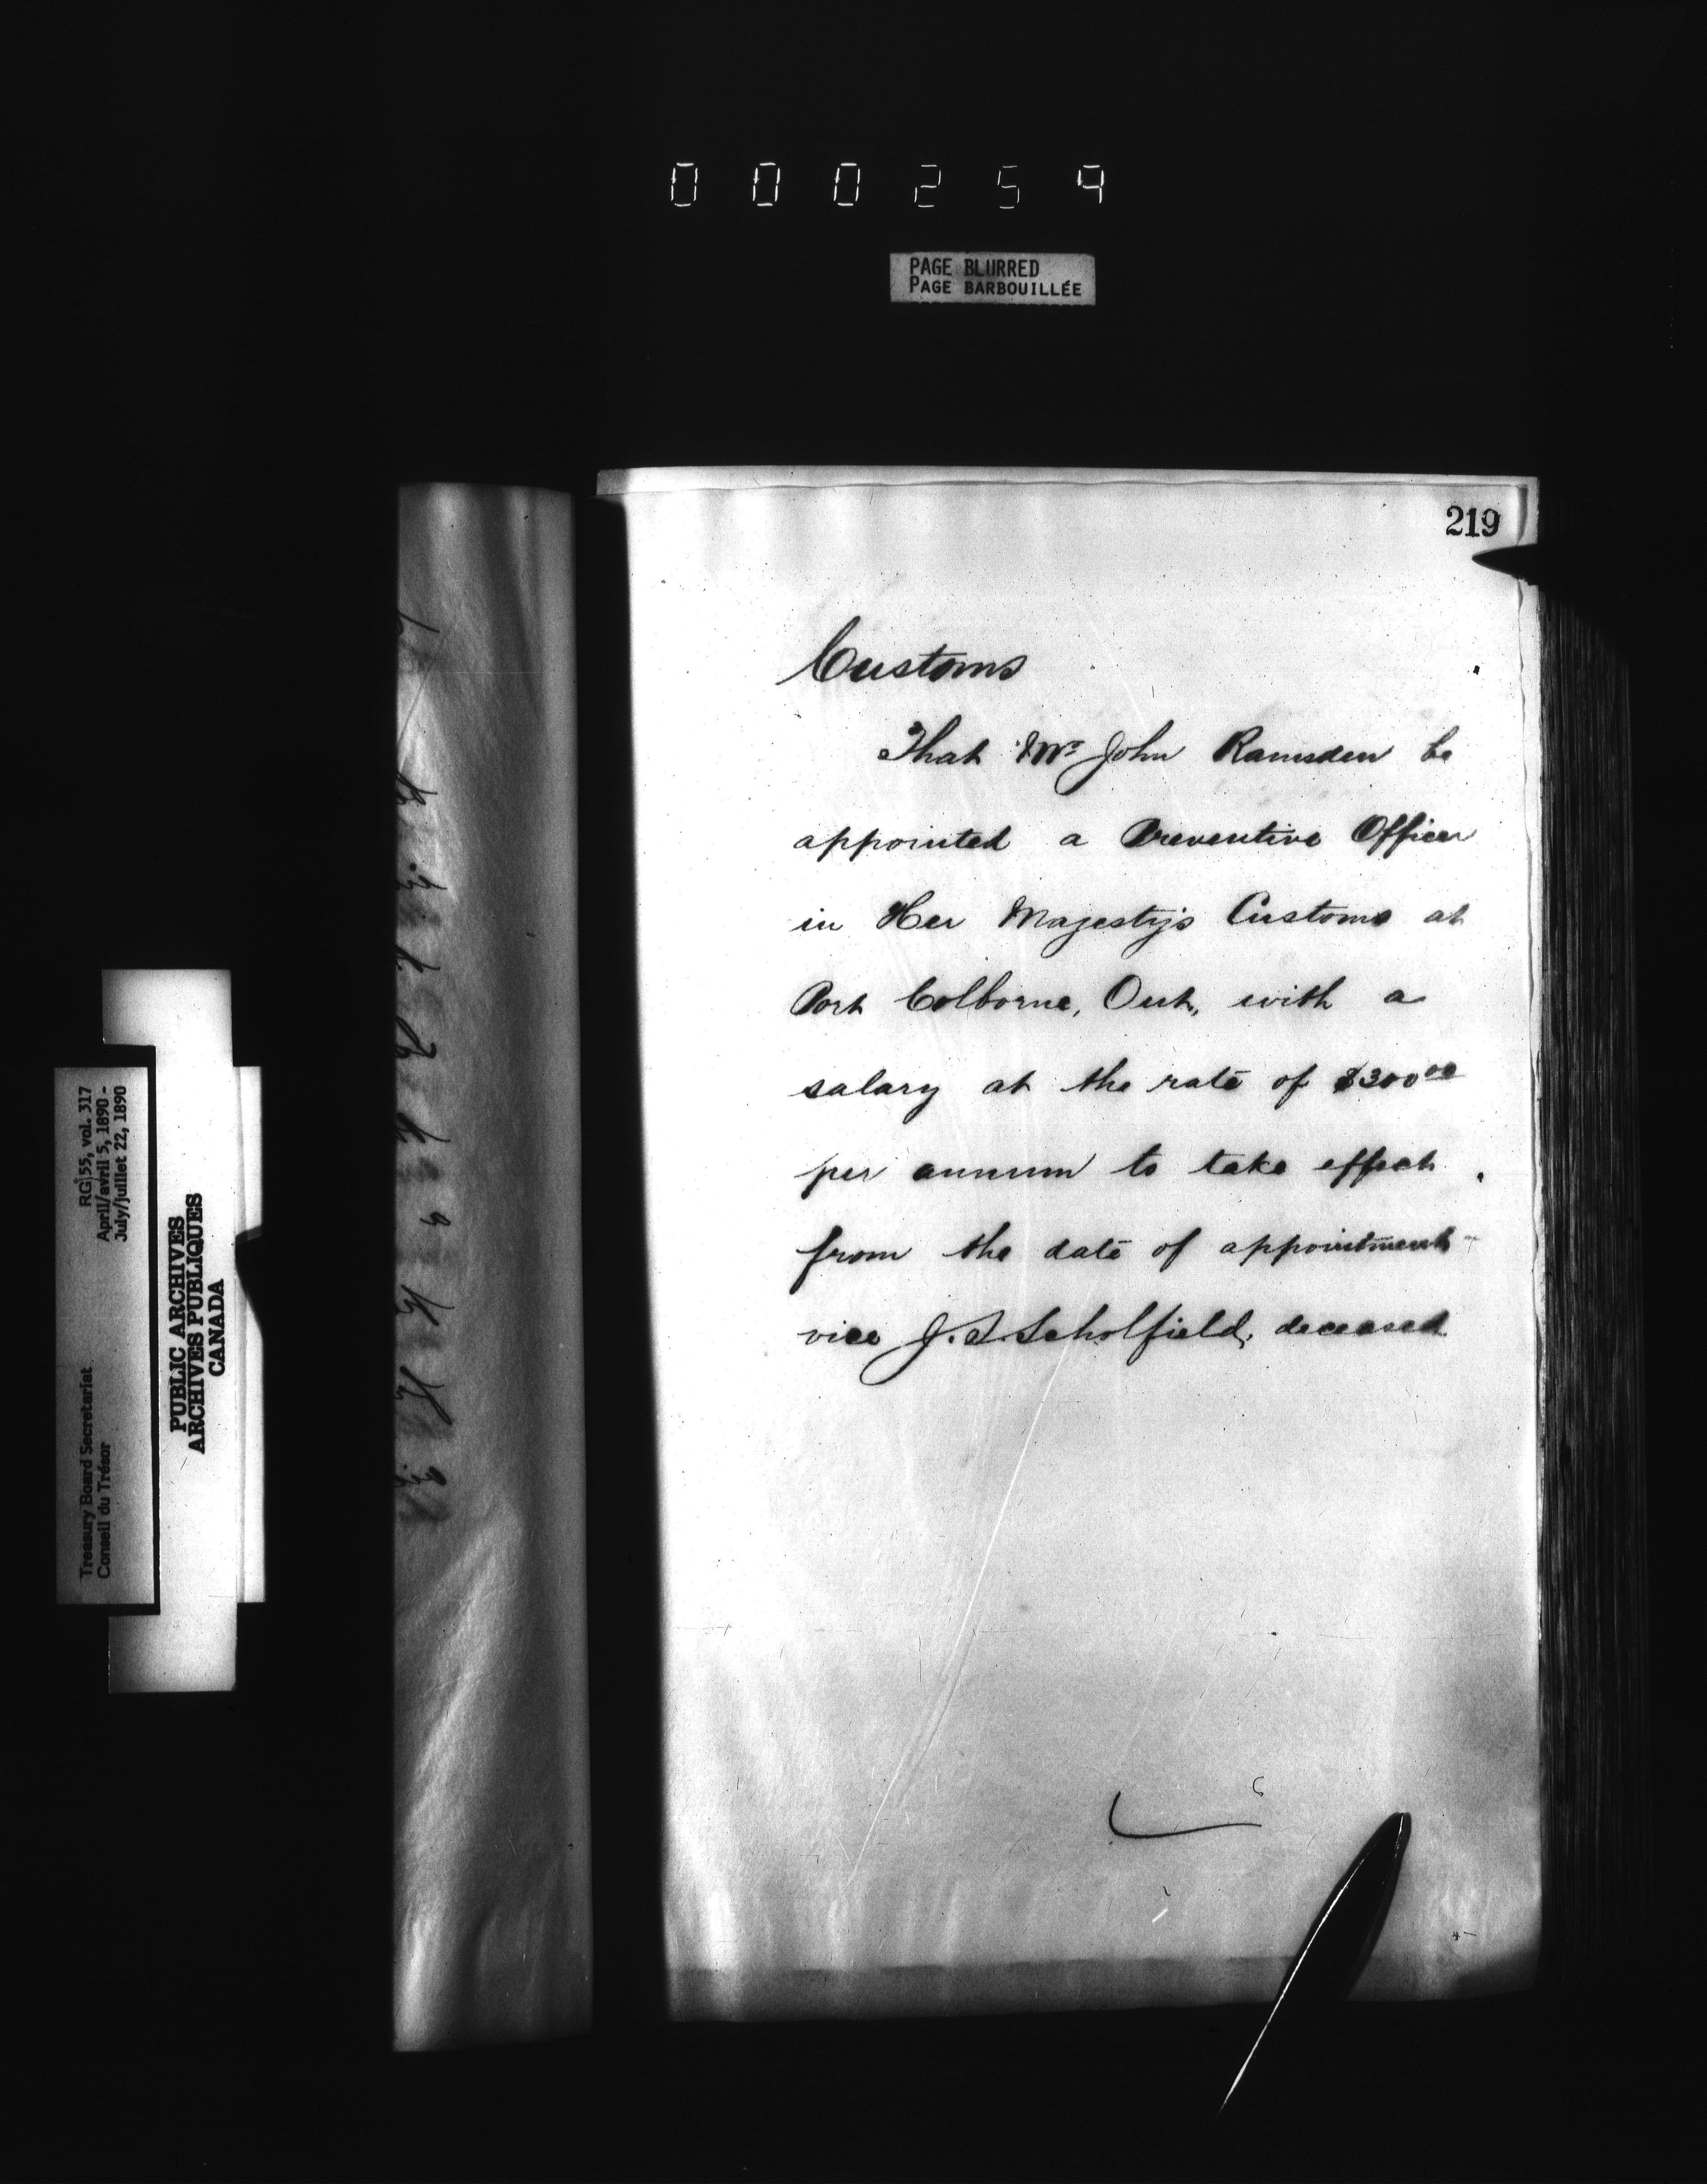 000259
PAGE BLURRED
PAGE BARBOUILLÉE
219
Customs
That Mr John Ramsden be
appointed a Preventive Officer
in Her Majesty's Customs at
Port Colborne, Ont, with a
salary at the rate of $300 00
per annum to take effect
from the date of appointment
vice J. S. Scholfield, deceased
RG 55, vol. 317
April/avril 5, 1890 -
July/juillet 22, 1890
Treasury Board Secretariat
Conseil du Trésor
PUBLIC ARCHIVES
ARCHIVES PUBLIQUES
CANADA